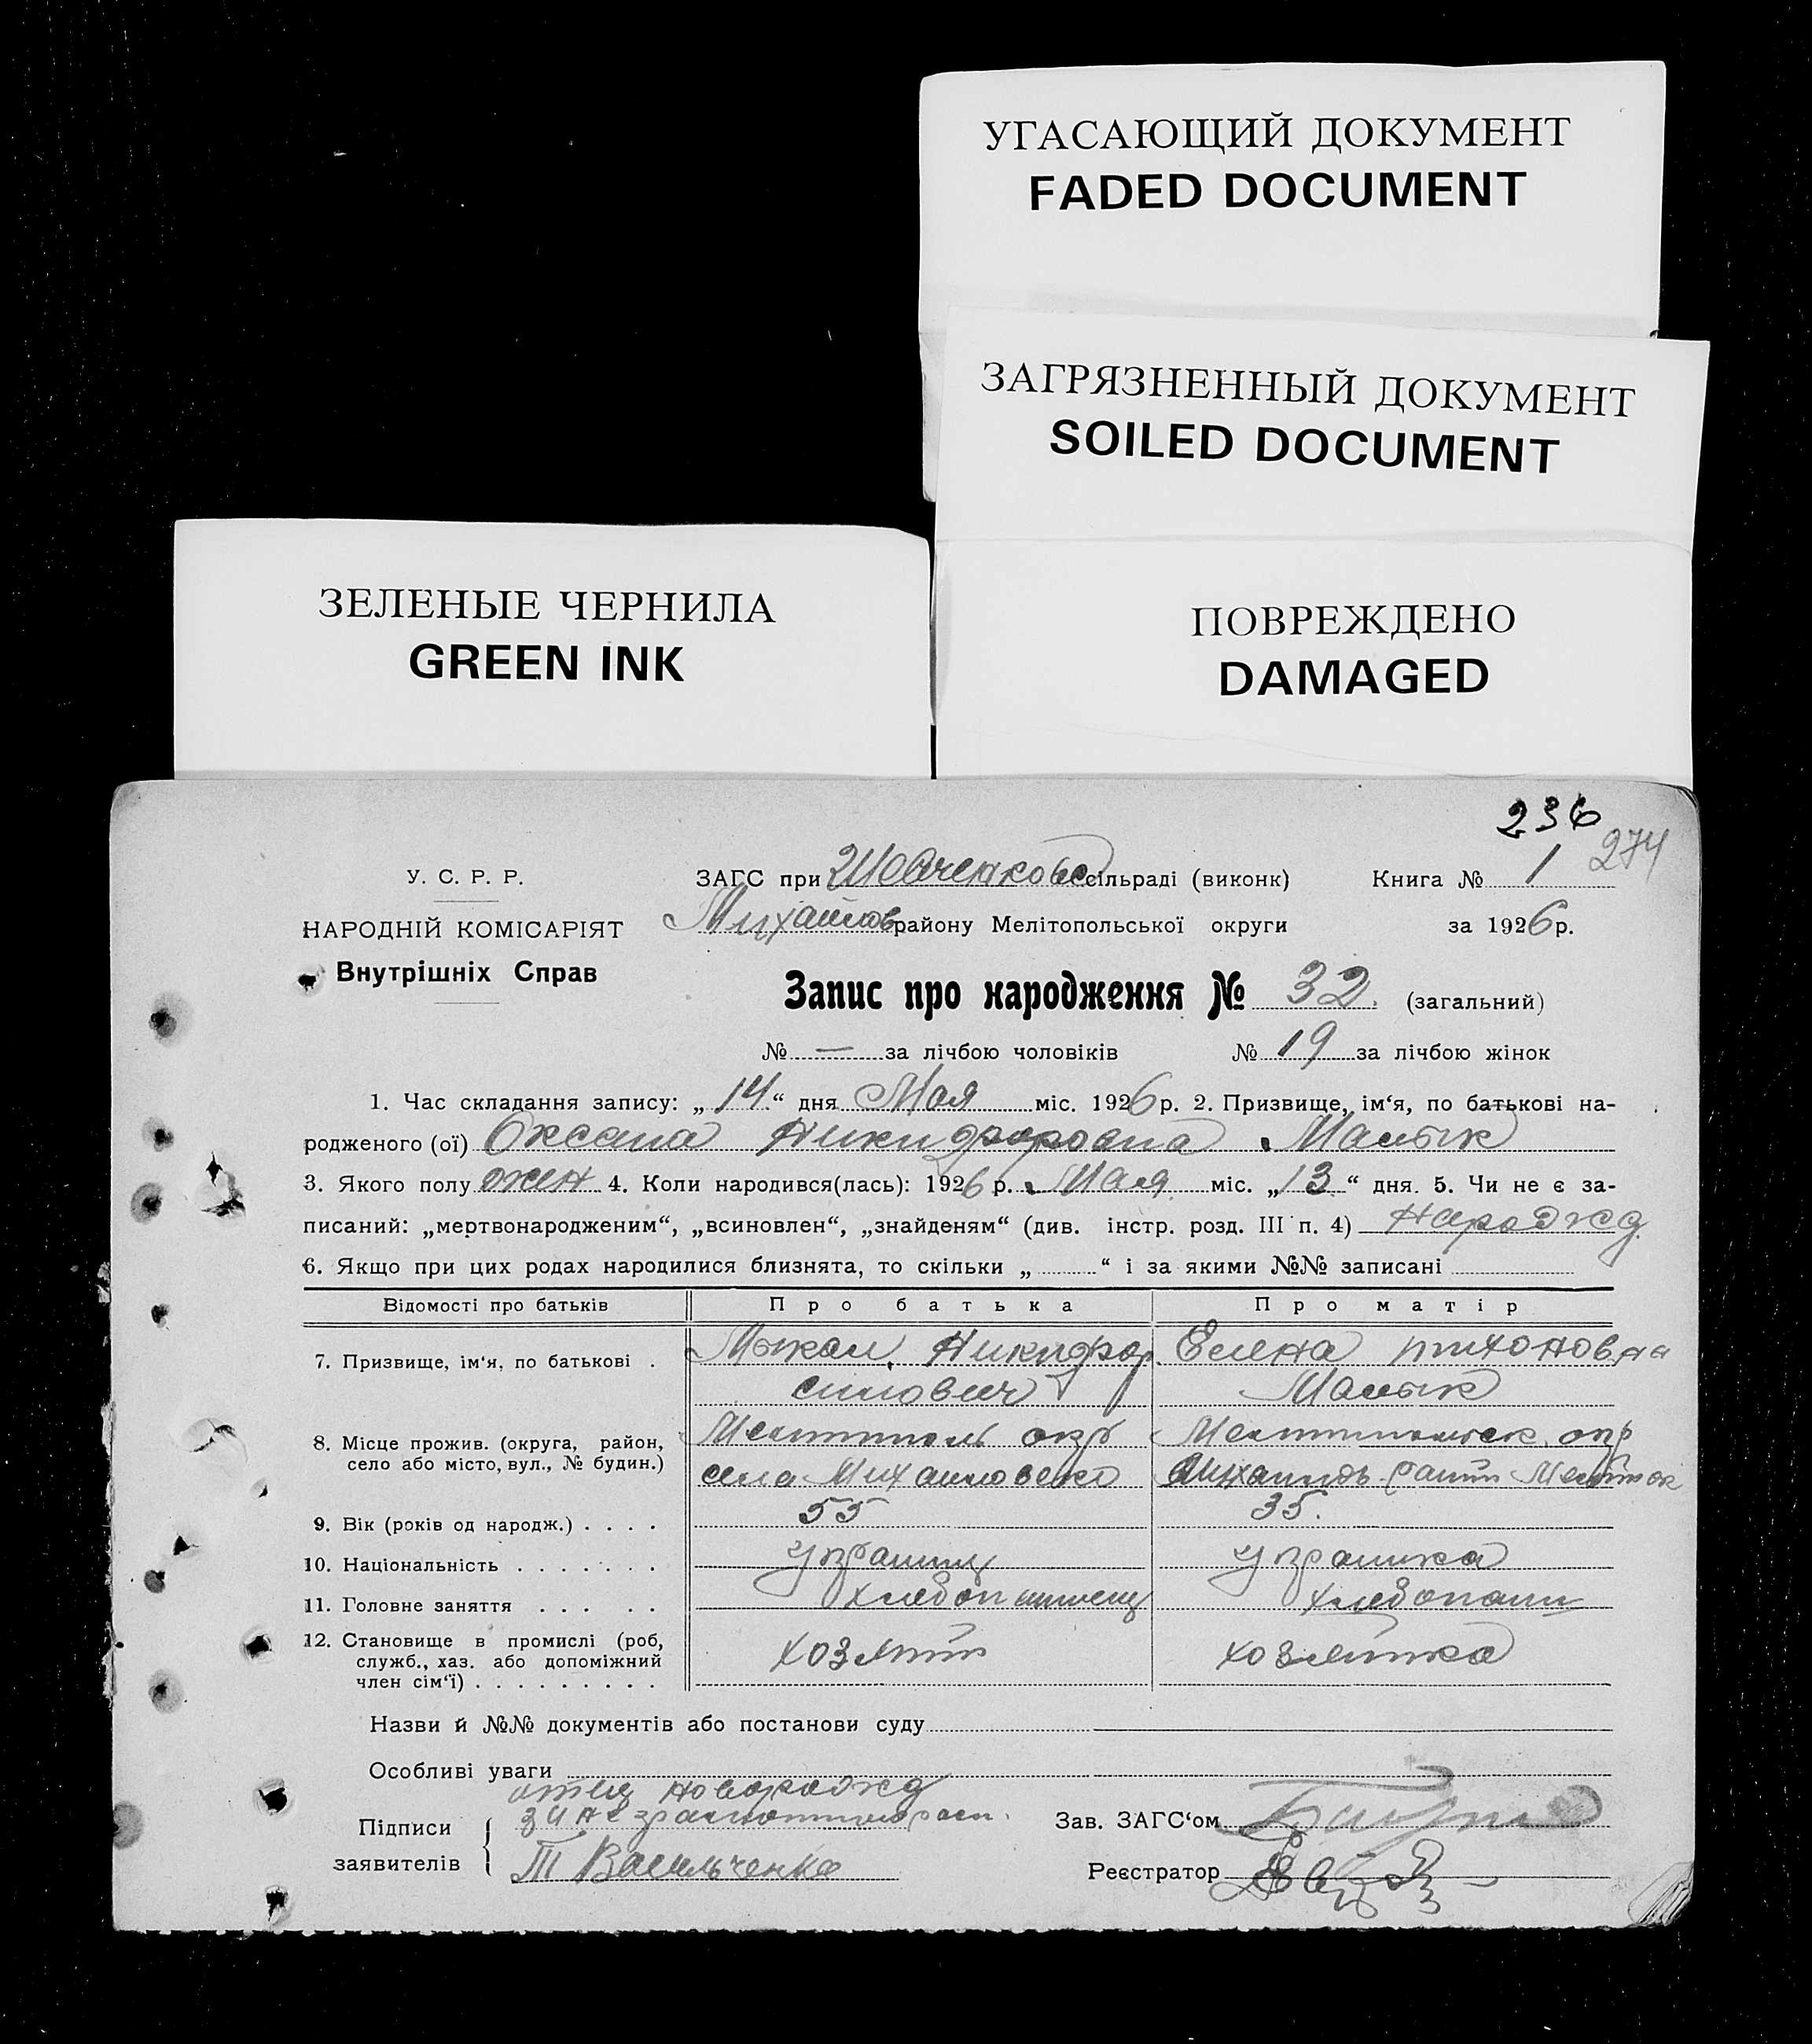 УГАСАЮЩИЙ ДОКУМЕНТ
FADED DOCUMENT
ЗАГРЯЗНЕННЫЙ ДОКУМЕНТ
SOILED DOCUMENT
ЗЕЛЕНЫЕ ЧЕРНИЛА
GREEN INK
ПОВРЕЖДЕНО
DAMAGED
236
274
У. С. Р. Р.
НАРОДНІЙ КОМІСАРІЯТ
Внутрішніх Справ
ЗАГС при Шевченковс сільраді (виконк) Книга № 1
Михайлов району Мелітопольської округи за 1926 р.
Запис про народження № 32. (загальний)
№ — за лічбою чоловіків № 19 за лічбою жінок
1. Час складання запису: „14“ дня Мая міс. 1926 р. 2. Призвище, ім‘я, по батькові на-
родженого (ої) Оксана Никифоровна Малык
3. Якого полу жен 4. Коли народився(лась): 1926 р. Мая міс. „13“ дня. 5. Чи не є за-
писаний: „мертвонародженим“, „всиновлен“, „знайденям“ (див. інстр. розд. III п. 4) Нарожд.
6. Якщо при цих родах народилися близнята, то скільки „ “ і за якими №№ записані
Відомості про батьків Про батька Про матір
7. Призвище, ім‘я, по батькові . Никифор Елена Тихоновна
Малык
8. Місце прожив. (округа, район, село або місто, вул., № будин.) окр окр
села Михайловско
9. Вік (років од народж.) . . . . 55 35.
10. Національність . . . . . . . украинец украинка
11. Головне заняття . . . . . хлебопашец хлебопаш
12. Становище в промислі (роб, служб., хаз. або допоміжний член сім‘ї) . . . . . . . . . хозяин хозяйка
Назви й №№ документів або постанови суду
Особливі уваги
отец новорожд
Підписи заявителів
Васильченко
Зав. ЗАГС‘ом
Реєстратор